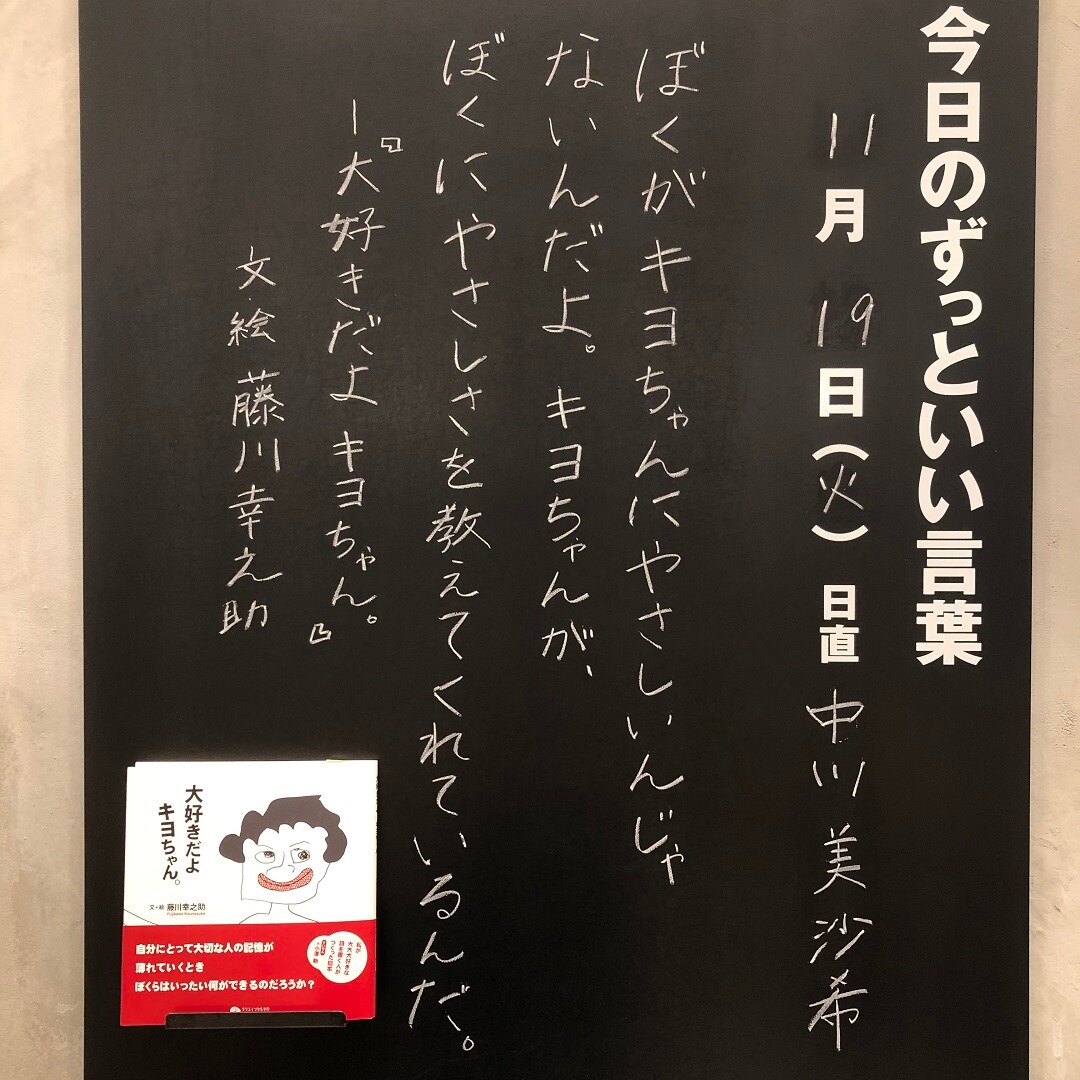 今日のずっといい言葉
11月19日(火) 日直 中川美沙希
ぼくがキヨちゃんにやさしいんじゃ
ないんだよ。キヨちゃんが、
ぼくにやさしさを教えてくれているんだ。
ー『大好きだよ キヨちゃん。』
文・絵 藤川幸之助
大好きだよ
キヨちゃん。
文・絵 藤川幸之助
Fujikawa Kounosuke
自分にとって大切な人の記憶が
薄れていくとき
ぼくらはいったい何ができるのだろうか?
私が
大大大好きな
詩を書く人が
つくった絵本